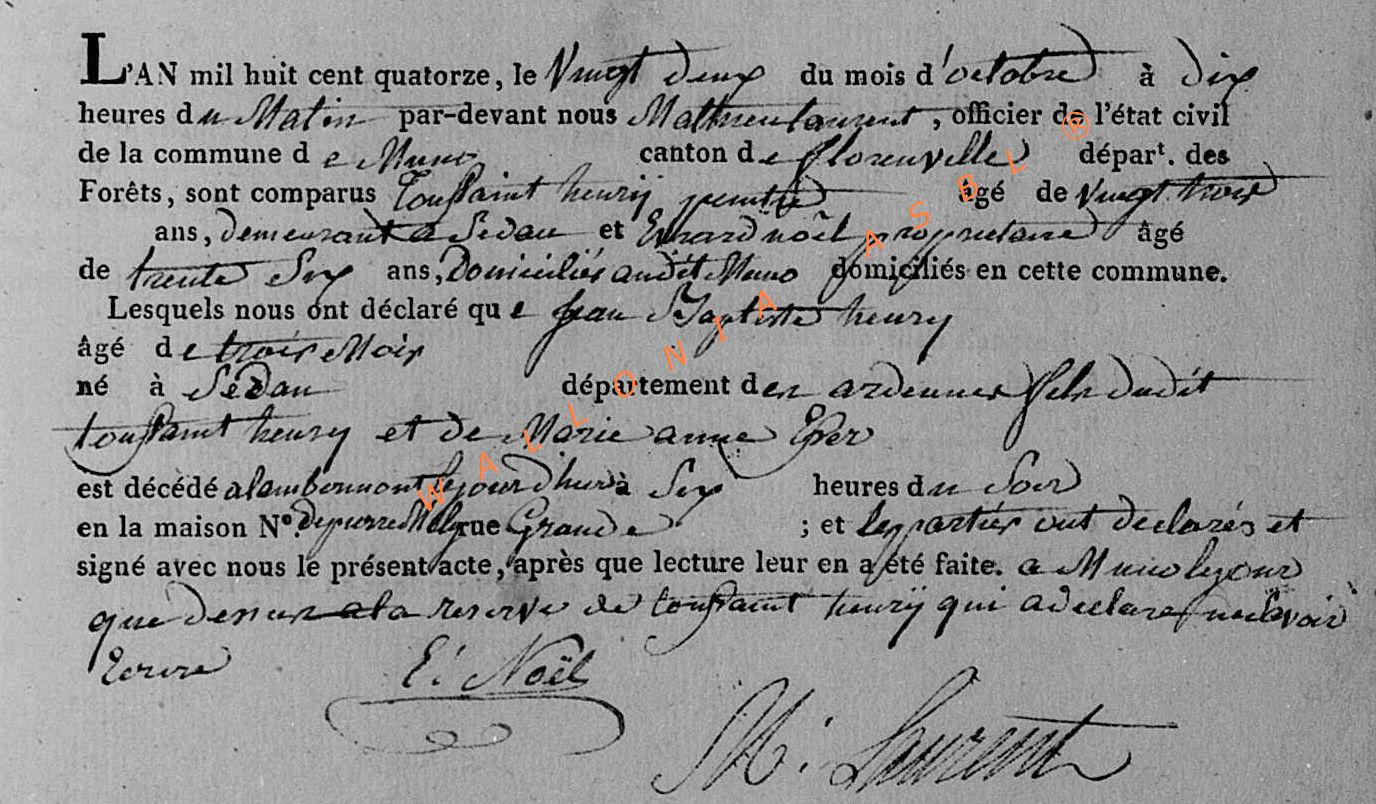 L'AN mil huit cent quatorze, le Vingt deux du mois d'octobre à dix
heures du Matin par-devant nous Mathieu Laurent, officier de l'état civil
de la commune de Muno canton de florenville dépar^t. des
Forêts, sont comparus Toussaint henry peintre âgé de Vingt trois
ans, demeurant a Sedan et Evrard noël proprietaire âgé
de trente Six ans, Domiciliés audit Muno domiciliés en cette commune.
Lesquels nous ont déclaré que jean Baptiste henry
âgé de trois Mois
né à Sedan département des ardennes fils dudit
toussaint henry et de Marie anne
est décédé a lambermont à Six heures du Soir
en la maison N°. de pierre rue Grande ; et les parties ont declarés et
signé avec nous le présent acte, après que lecture leur en a été faite. a Muno le jour
que dessus a la reserve de toussaint henry qui a declaré
Ecrire
E: Noël
M: Laurent
WALLONIA ASBL ®